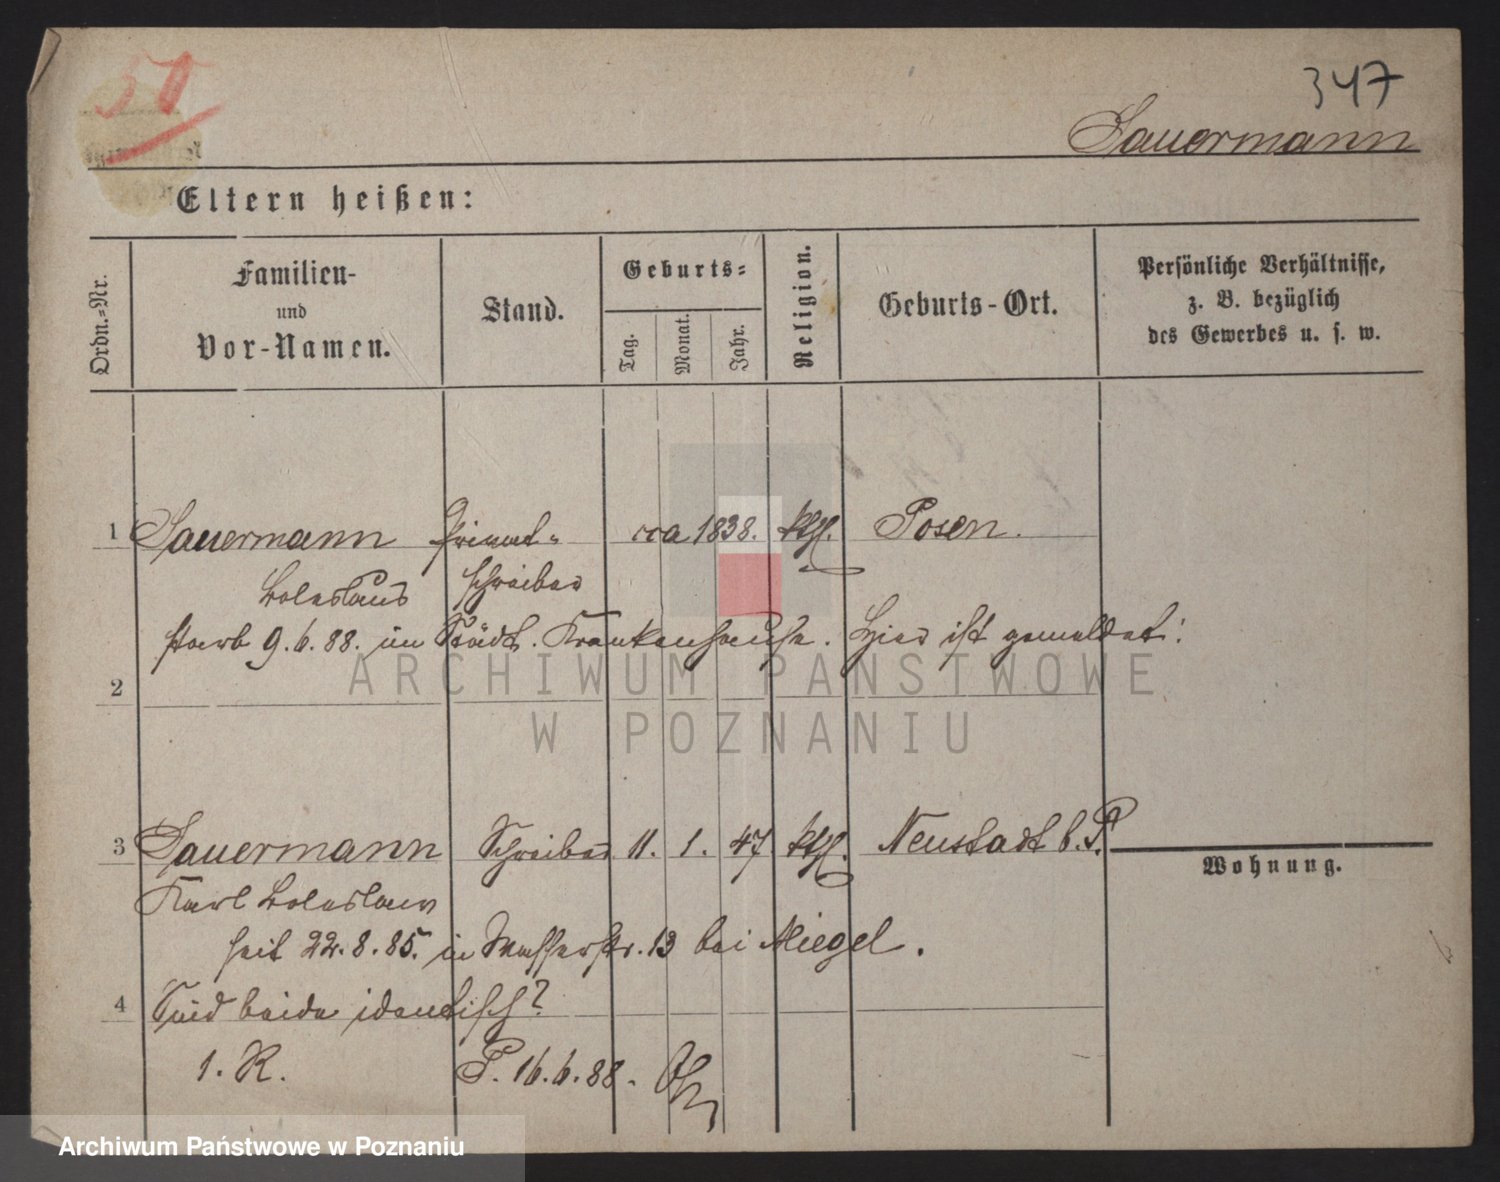 51
347
Sauermann
Eltern heißen:
Ordn.-Nr.
Familien-
und
Vor-Namen.
Stand.
Geburts-
Tag.
Monat.
Jahr.
Religion.
Geburts-Ort.
Persönliche Verhältnisse,
z. B. bezüglich
des Gewerbes u. s. w.
1 Sauermann Privat- cca 1838. kth. Posen.
Boleslaus schreiber
starb 9.6.88. im Städt. Krankenhause. Hier ist gemeldet:
2
3 Sauermann Schreiber 11. 1. 47 kth. Neustadt b. P.
Wohnung.
Karl Boleslaus
seit 22.8.85. in Wasserstr. 13 bei Miegel.
4 Sind beide identisch?
1. R. P. 16.6.88.
ARCHIWUM PAŃSTWOWE
W POZNANIU
Archiwum Państwowe w Poznaniu